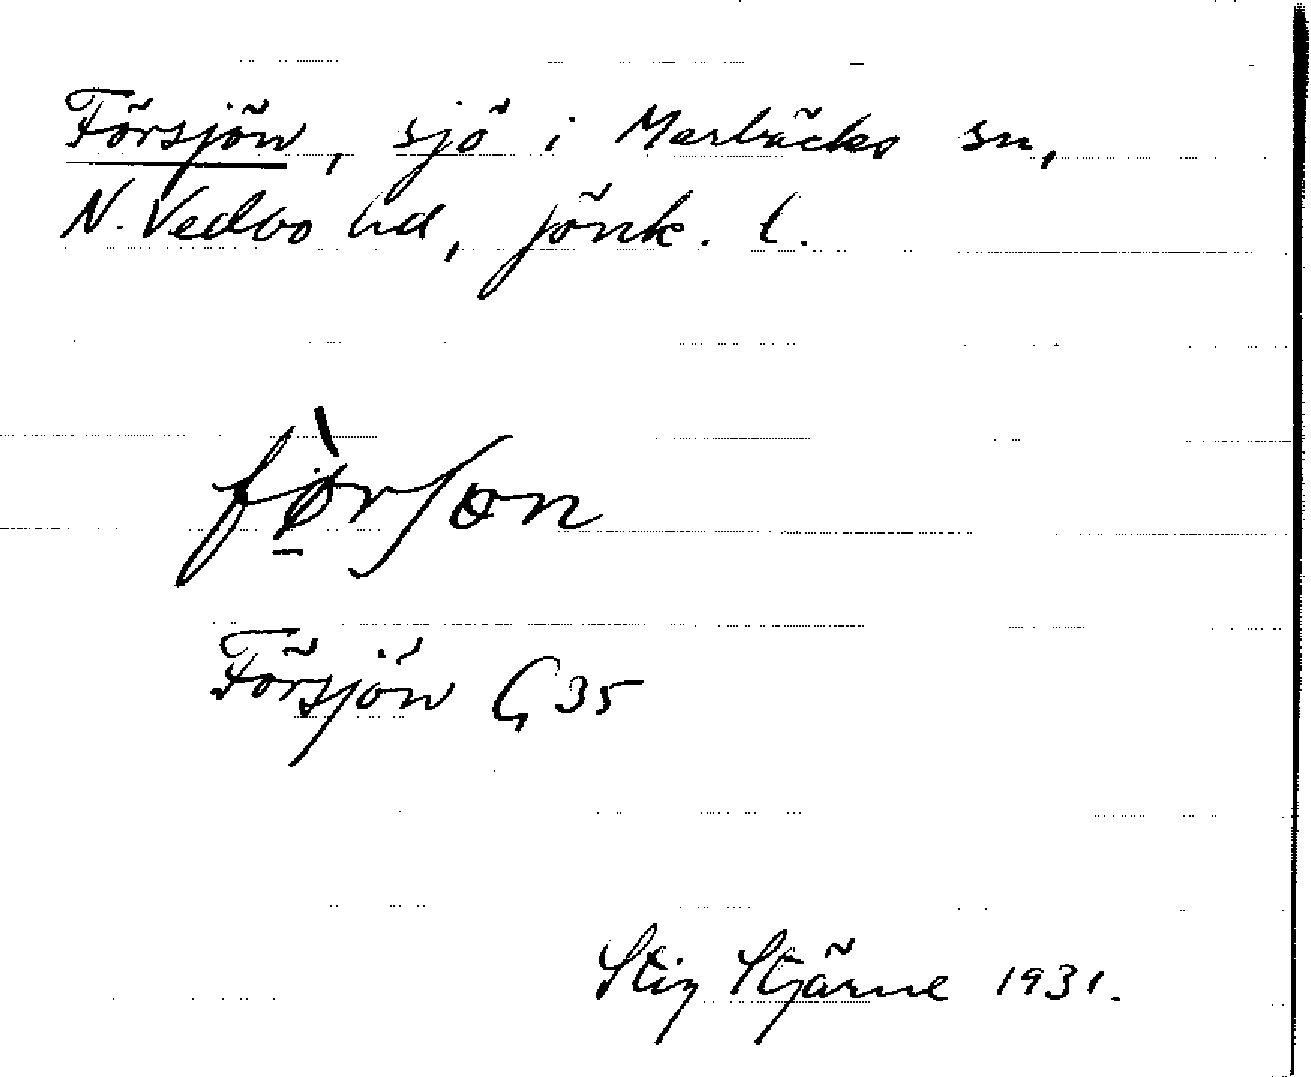 Försjön, sjö i Marbäcks sn,
N. Vedbo hd, Jönk. l.
fø̀rʃon
Försjön G 35
Stig Stjärne 1931.